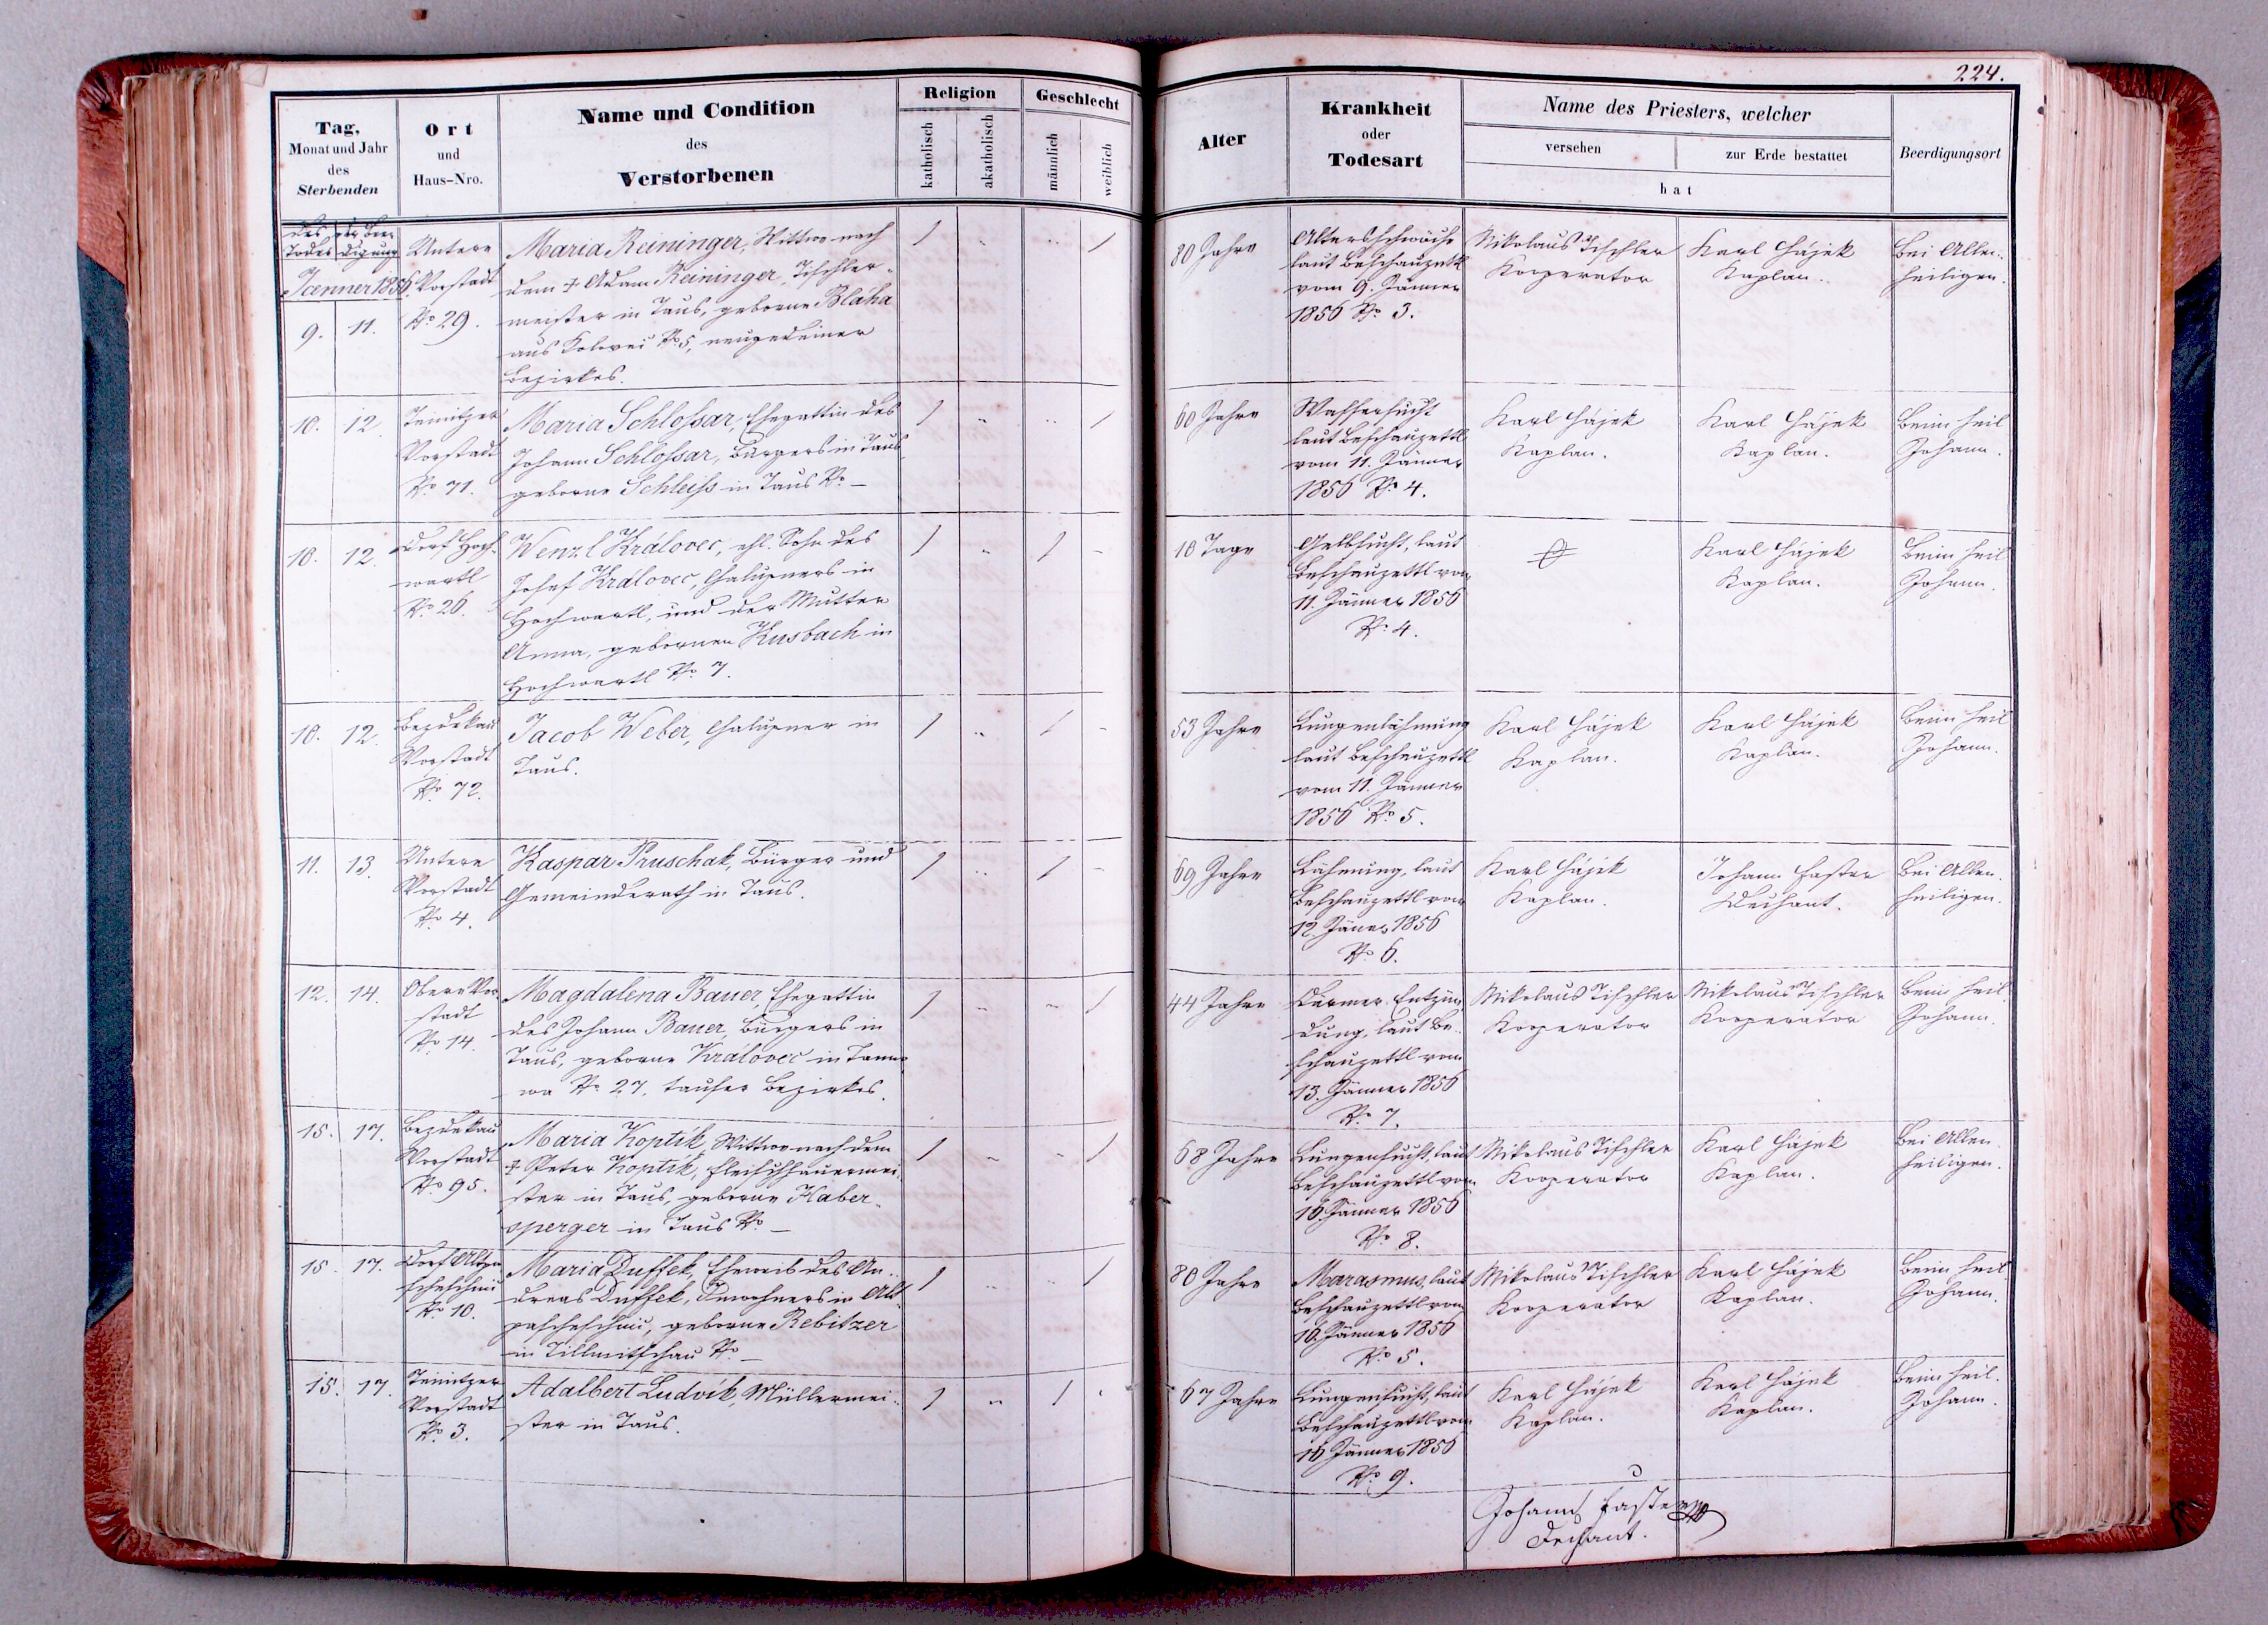 224.
Tag,
Monat und Jahr
des
Sterbenden
Ort
und
Haus-Nro.
Name und Condition
des
Verstorbenen
Religion
katholisch
akatholisch
Geschlecht
männlich
weiblich
Alter
Krankheit
oder
Todesart
Name des Priesters, welcher
versehen
zur Erde bestattet
hat
Beerdigungsort
des
Todes
der Beer
digung
Jaenner 1856.
9. 11.
Untere
Vorstadt
No 29.
Maria Reininger, Wittwe nach
dem † Adam Reininger, Tischler-
meister in Taus, geborne Bláha
aus No 5, neugedeiner
Bezirkes.
1 „ „ 1
80 Jahre
Altersschwäche
laut Beschauzettl
vom 9. Jänner
1856 No 3.
Nikolaus Tischler
Kooperator
Karl Hájek
Kaplan.
Bei Allen-
heiligen.
10. 12.
Teinitzer
Vorstadt
No 71.
Maria Schlossar, Ehegattin des
Johann Schlossar, Bürgers in Taus,
geborne Schleiss in Taus No –
1 „ „ 1
60 Jahre
Wassersucht
laut Beschauzettl
vom 11. Jänner
1856 No 4.
Karl Hájek
Kaplan.
Karl Hájek
Kaplan.
Beim heil
Johann.
10. 12.
Dorf Hoch-
wartl
No 26.
Wenzl Královec, ehl. Sohn des
Josef Královec, Chalupners in
Hochwartl, und der Mutter
Anna, gebornen Kusbach in
Hochwartl No 7.
1 „ 1 –
10 Tage
Gelbsucht, laut
Beschauzettl vom
11. Jänner 1856
No 4.
Karl Hájek
Kaplan.
Beim heil
Johann.
10. 12.
Bezdekau
Vorstadt
No 72.
Jacob Weber, Chalupner in
Taus.
1 „ 1 –
53 Jahre
Lungenlähmung
laut Beschauzettl
vom 11. Jänner
1856 No 5.
Karl Hájek
Kaplan.
Karl Hájek
Kaplan.
Beim heil
Johann.
11. 13.
Untere
Vorstadt
No 4.
Kaspar Pruschak, Bürger und
Gemeinderath in Taus.
1 „ 1 –
69 Jahre
Lähmung, laut
Beschauzettl vom
12. Jäner 1856
No 6.
Karl Hájek
Kaplan.
Johann Faster
Dechant.
Bei Allen-
heiligen.
12. 14.
Obere Vor
stadt
No 14.
Magdalena Bauer, Ehegattin
des Johann Bauer, Bürgers in
Taus, geborne Královec in
No 27, tauser Bezirkes.
1 „ „ 1
44 Jahre
Darmer. Entzün
dung, laut Be-
schauzettl vom
13. Jänner 1856
No 7.
Nikolaus Tischler
Kooperator
Nikolaus Tischler
Kooperator
Beim heil.
Johann.
15. 17.
Bezdekau
Vorstadt
No 95.
Maria Koptík, Wittwe nach dem
† Peter Koptík, Fleischhauermei-
ster in Taus, geborne Haber-
sperger in Taus No –
1 „ „ 1
68 Jahre
Lungensucht, laut
Beschauzettl vom
16. Jänner 1856
No 8.
Nikolaus Tischler
Kooperator
Karl Hájek
Kaplan.
Bei Allen
heiligen.
15. 17.
Dorf Altpa
scheschnic
No 10.
Maria Duffek, Eheweib des An-
dreas Duffek, Inwohners in Alt-
pascheschnic, geborne Rebitzer
in Tillmitschau No –
1 „ „ 1
80 Jahre
Marasmus, laut
Beschauzettl vom
16. Jänner 1856
No 5.
Nikolaus Tischler
Kooperator
Karl Hájek
Kaplan.
Beim heil
Johann.
15. 17.
Teinitzer
Vorstadt
No 3.
Adalbert Ludvík, Müllermei-
ster in Taus.
1 „ 1 „
67 Jahre
Lungensucht, laut
Beschauzettl vom
16 Jänner 1856
No 9.
Karl Hájek
Kaplan.
Karl Hájek
Kaplan.
Beim heil.
Johann.
Johann Faster
Dechant.